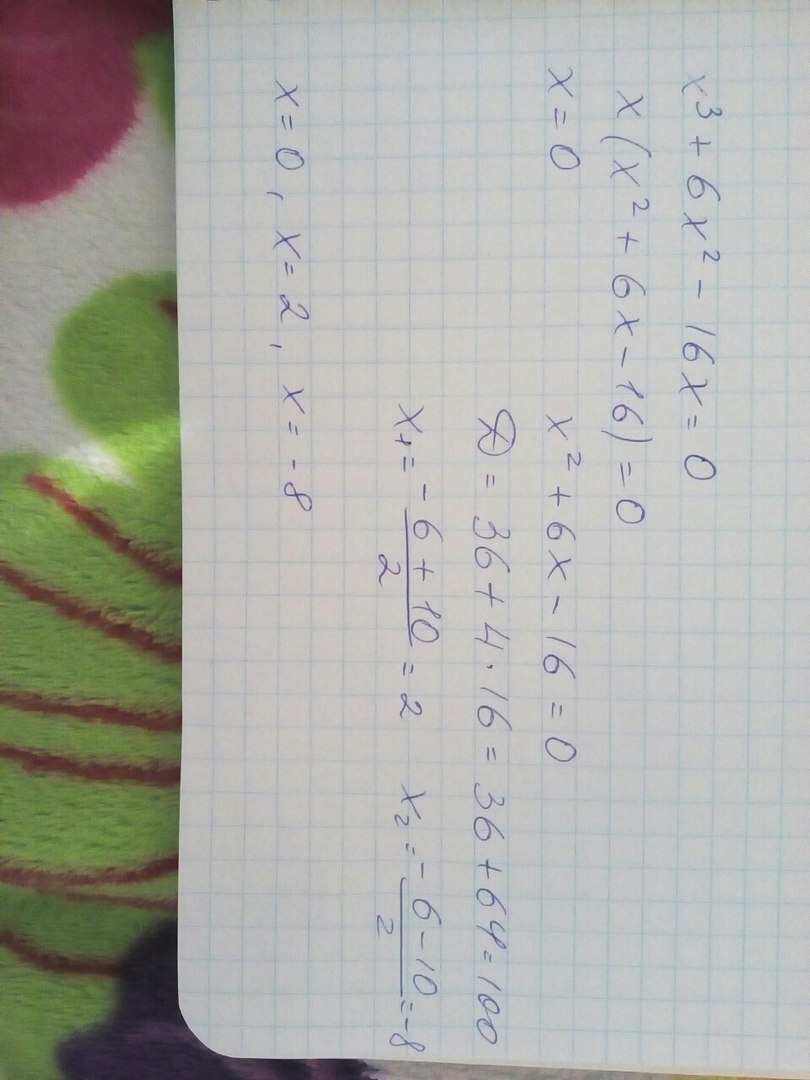 x³ + 6x² - 16x = 0
x(x² + 6x - 16) = 0
x = 0 x² + 6x - 16 = 0
D = 36 + 4·16 = 36 + 64 = 100
x₁ = (-6 + 10)/2 = 2 x₂ = (-6 - 10)/2 = -8
x = 0, x = 2, x = -8